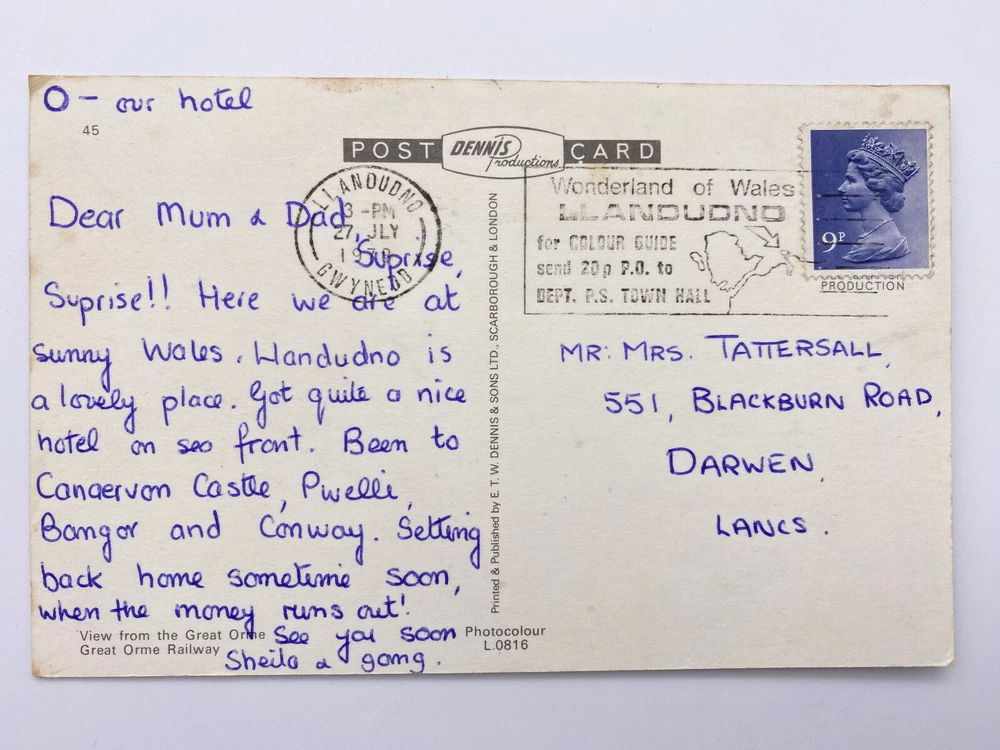 O - our hotel
45
POST DENNIS Productions CARD
LLANDUDNO
3 - PM
27 JLY
GWYNEDD
Wonderland of Wales
LLANDUDNO
for COLOUR GUIDE
send 20p P.O. to
DEPT. P.S. TOWN HALL
9P
PRODUCTION
Dear Mum & Dad,
Suprise,
Suprise!! Here we are at
sunny Wales. Llandudno is
a lovely place. Got quite a nice
hotel on sea front. Been to
Canaervon Castle, Pwelli,
Bangor and Conway. Setting
back home sometime soon,
when the money runs out!
See you soon
Sheila & gang.
View from the Great Orme
Great Orme Railway
Photocolour
L.0816
Printed & Published by E. T. W. DENNIS & SONS LTD., SCARBOROUGH & LONDON
MR: MRS. TATTERSALL,
551, BLACKBURN ROAD,
DARWEN,
LANCS.